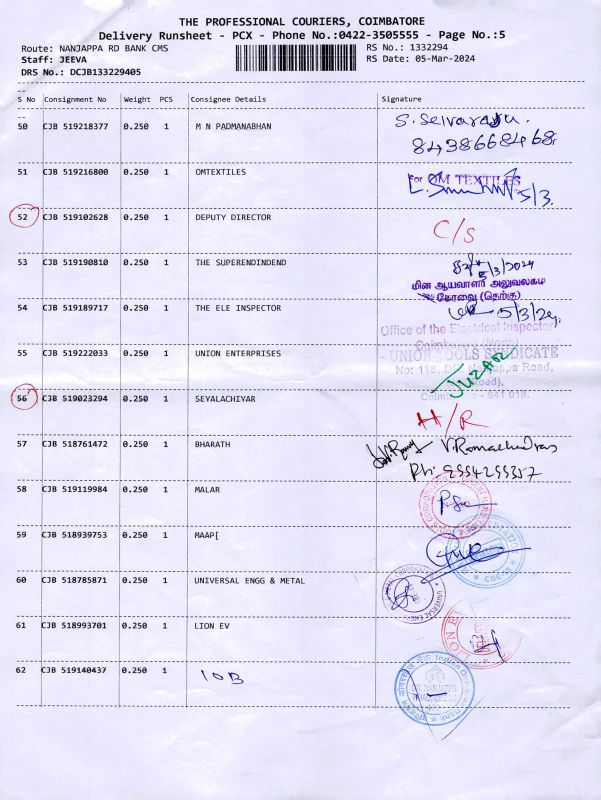 THE PROFESSIONAL COURIERS, COIMBATORE
Delivery Runsheet - PCX - Phone No.:0422-3505555 - Page No.:5
Route: NANJAPPA RD BANK CMS
RS No.: 1332294
Staff: JEEVA
RS Date: 05-Mar-2024
DRS No.: DCJB133229405
--
S No Consignment No Weight PCS Consignee Details Signature
--
50 CJB 519218377 0.250 1 M N PADMANABHAN
S. Selvaraju.
8438668468
51 CJB 519216800 0.250 1 OMTEXTILES
For OM TEXTILES
5/3.
52 CJB 519102628 0.250 1 DEPUTY DIRECTOR
C/S
53 CJB 519190810 0.250 1 THE SUPERENDINDEND
5/3/2024
மின் ஆய்வாளர் அலுவலகம்
கோவை (தெற்கு)
54 CJB 519189717 0.250 1 THE ELE INSPECTOR
5/3/24,
Office of the Electrical Inspector
Coimbatore (North)
55 CJB 519222033 0.250 1 UNION ENTERPRISES
UNION TOOLS SYNDICATE
No: 118, Nanjappa Road,
JUZAR
Coimbatore - 641 018.
56 CJB 519023294 0.250 1 SEYALACHIYAR
H/R
57 CJB 518761472 0.250 1 BHARATH
V. Ramachandran
Ph: 9994299357
58 CJB 519119984 0.250 1 MALAR
59 CJB 518939753 0.250 1 MAAP[
CBE-18
60 CJB 518785871 0.250 1 UNIVERSAL ENGG & METAL
61 CJB 518993701 0.250 1 LION EV
62 CJB 519140437 0.250 1 IOB
Indian Overseas Bank